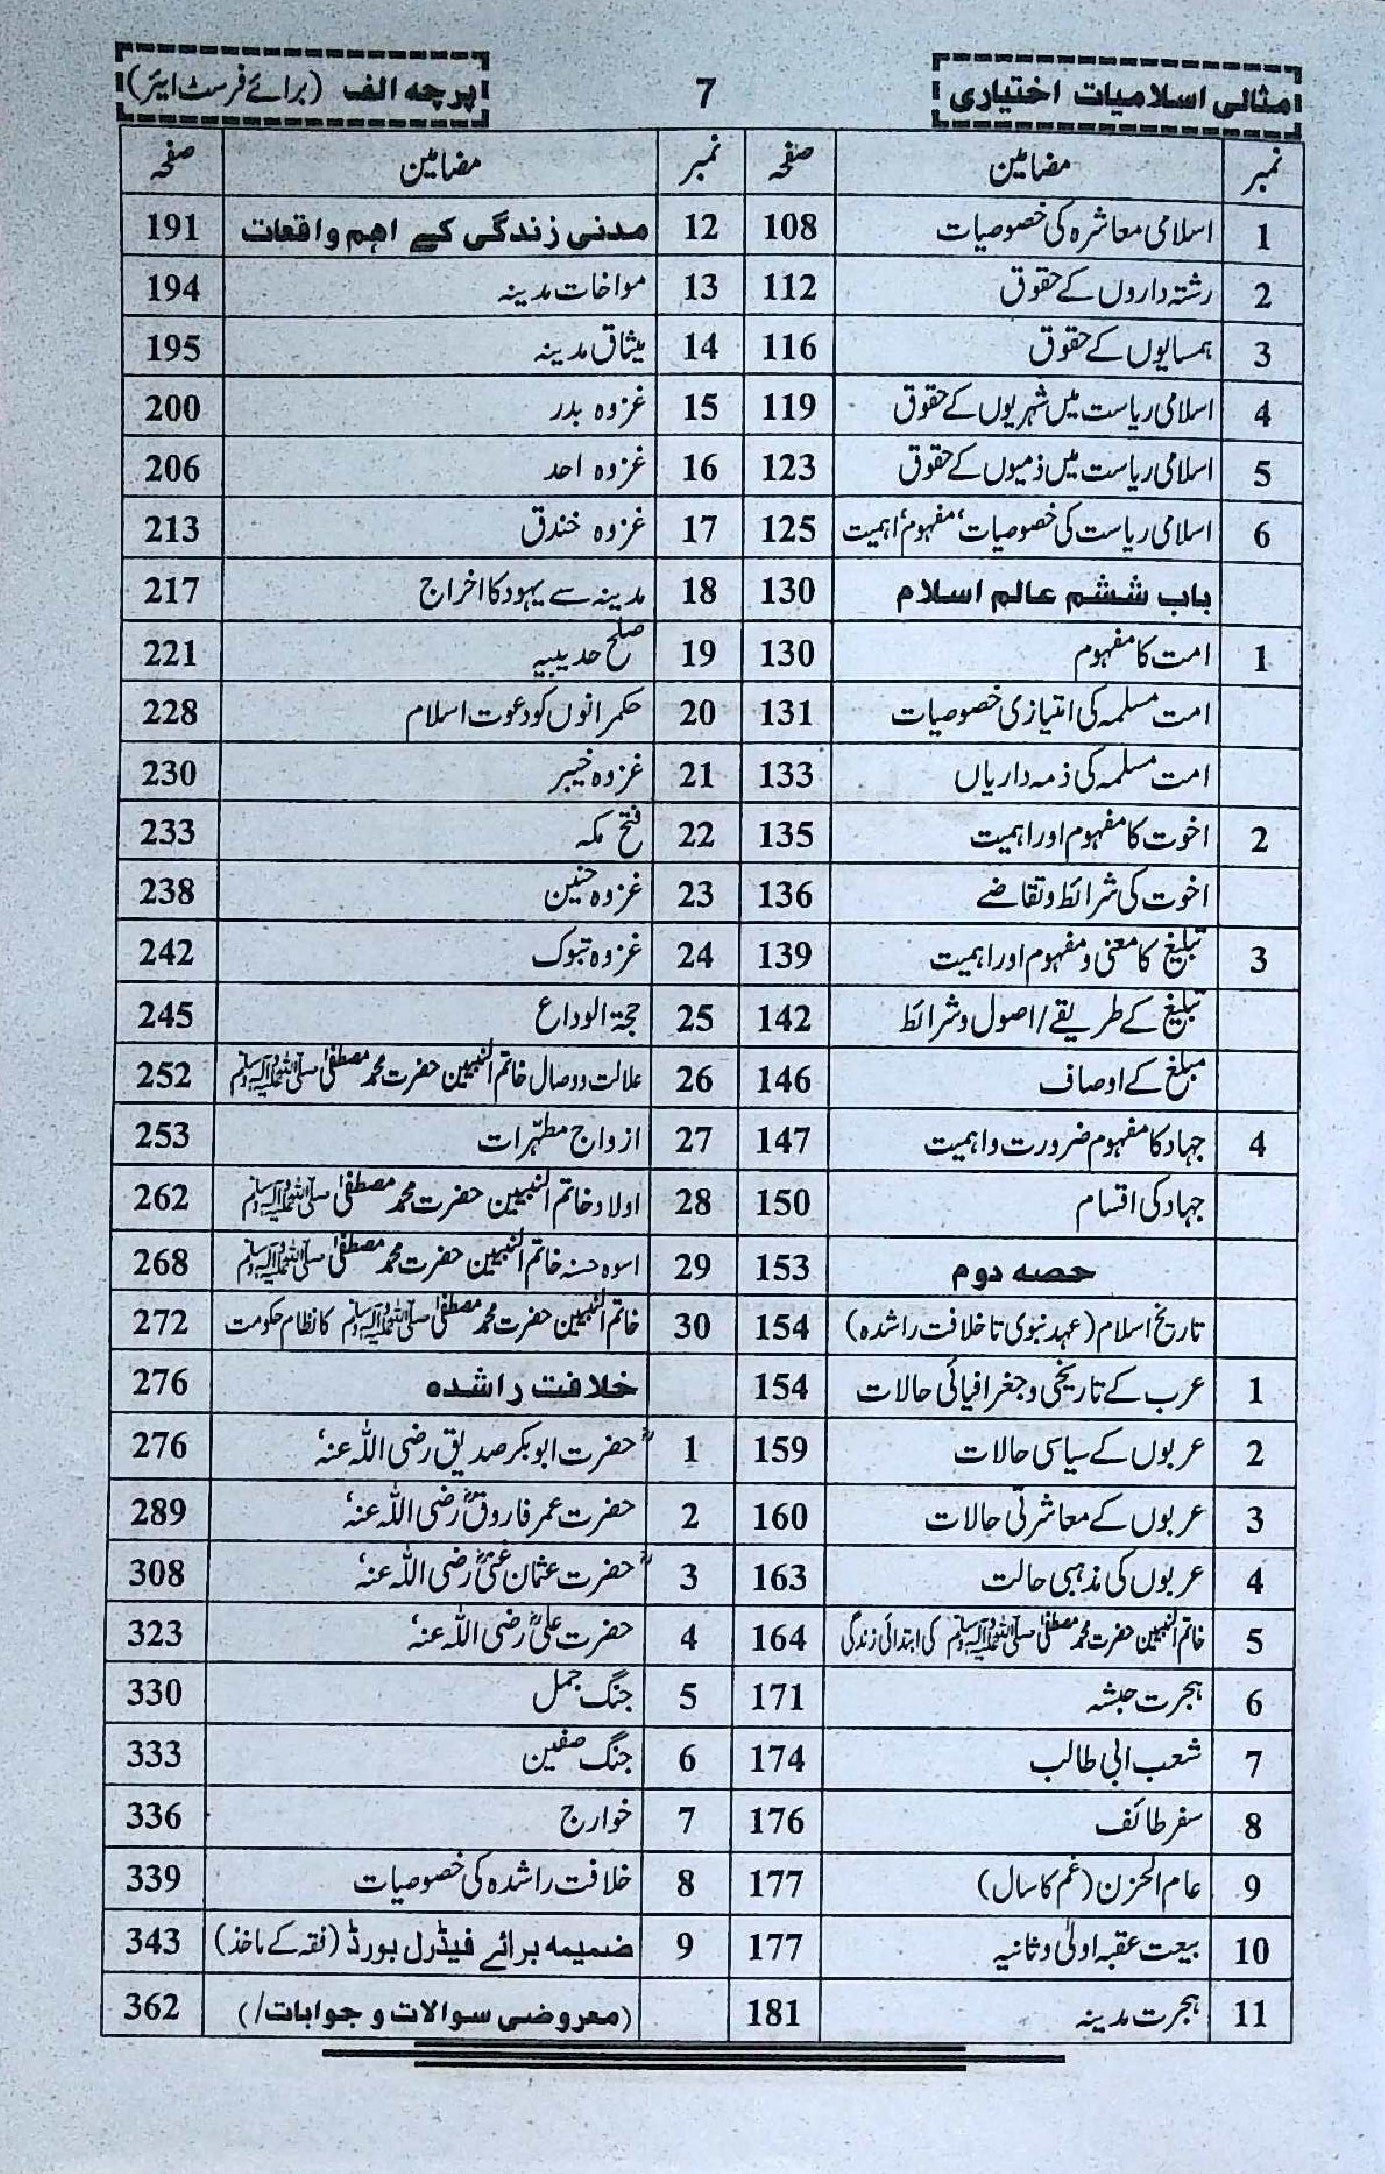 مثالی اسلامیات اختیاری 7 پرچہ الف (برائے فرسٹ ایئر)
نمبر مضامین صفحہ نمبر مضامین صفحہ
1 اسلامی معاشرہ کی خصوصیات 108 12 مدنی زندگی کے اہم واقعات 191
2 رشتہ داروں کے حقوق 112 13 مواخات مدینہ 194
3 ہمسایوں کے حقوق 116 14 میثاق مدینہ 195
4 اسلامی ریاست میں شہریوں کے حقوق 119 15 غزوہ بدر 200
5 اسلامی ریاست میں ذمیوں کے حقوق 123 16 غزوہ احد 206
6 اسلامی ریاست کی خصوصیات، مفہوم، اہمیت 125 17 غزوہ خندق 213
باب ششم عالم اسلام 130 18 مدینہ سے یہود کا اخراج 217
1 امت کا مفہوم 130 19 صلح حدیبیہ 221
امت مسلمہ کی امتیازی خصوصیات 131 20 حکمرانوں کو دعوت اسلام 228
امت مسلمہ کی ذمہ داریاں 133 21 غزوہ خیبر 230
2 اخوت کا مفہوم اور اہمیت 135 22 فتح مکہ 233
اخوت کی شرائط و تقاضے 136 23 غزوہ حنین 238
3 تبلیغ کا معنی و مفہوم اور اہمیت 139 24 غزوہ تبوک 242
تبلیغ کے طریقے/اصول و شرائط 142 25 حجۃ الوداع 245
مبلغ کے اوصاف 146 26 علالت و وصال خاتم النبیین حضرت محمد مصطفیٰ صلی اللہ علیہ وسلم 252
4 جہاد کا مفہوم ضرورت و اہمیت 147 27 ازواج مطہّرات 253
جہاد کی اقسام 150 28 اولاد خاتم النبیین حضرت محمد مصطفیٰ صلی اللہ علیہ وسلم 262
حصہ دوم 153 29 اسوہ حسنہ خاتم النبیین حضرت محمد مصطفیٰ صلی اللہ علیہ وسلم 268
تاریخ اسلام (عہد نبوی تا خلافت راشدہ) 154 30 خاتم النبیین حضرت محمد مصطفیٰ صلی اللہ علیہ وسلم کا نظام حکومت 272
1 عرب کے تاریخی و جغرافیائی حالات 154 خلافت راشدہ 276
2 عربوں کے سیاسی حالات 159 1 حضرت ابوبکر صدیق رضی اللہ عنہ 276
3 عربوں کے معاشرتی حالات 160 2 حضرت عمر فاروقؓ رضی اللہ عنہ 289
4 عربوں کی مذہبی حالت 163 3 حضرت عثمان غنیؓ رضی اللہ عنہ 308
5 خاتم النبیین حضرت محمد مصطفیٰ صلی اللہ علیہ وسلم کی ابتدائی زندگی 164 4 حضرت علیؓ رضی اللہ عنہ 323
6 ہجرت حبشہ 171 5 جنگ جمل 330
7 شعب ابی طالب 174 6 جنگ صفین 333
8 سفر طائف 176 7 خوارج 336
9 عام الحزن (غم کا سال) 177 8 خلافت راشدہ کی خصوصیات 339
10 بیعت عقبہ اولیٰ و ثانیہ 177 9 ضمیمہ برائے فیڈرل بورڈ (فقہ کے ماخذ) 343
11 ہجرت مدینہ 181 (معروضی سوالات و جوابات/) 362